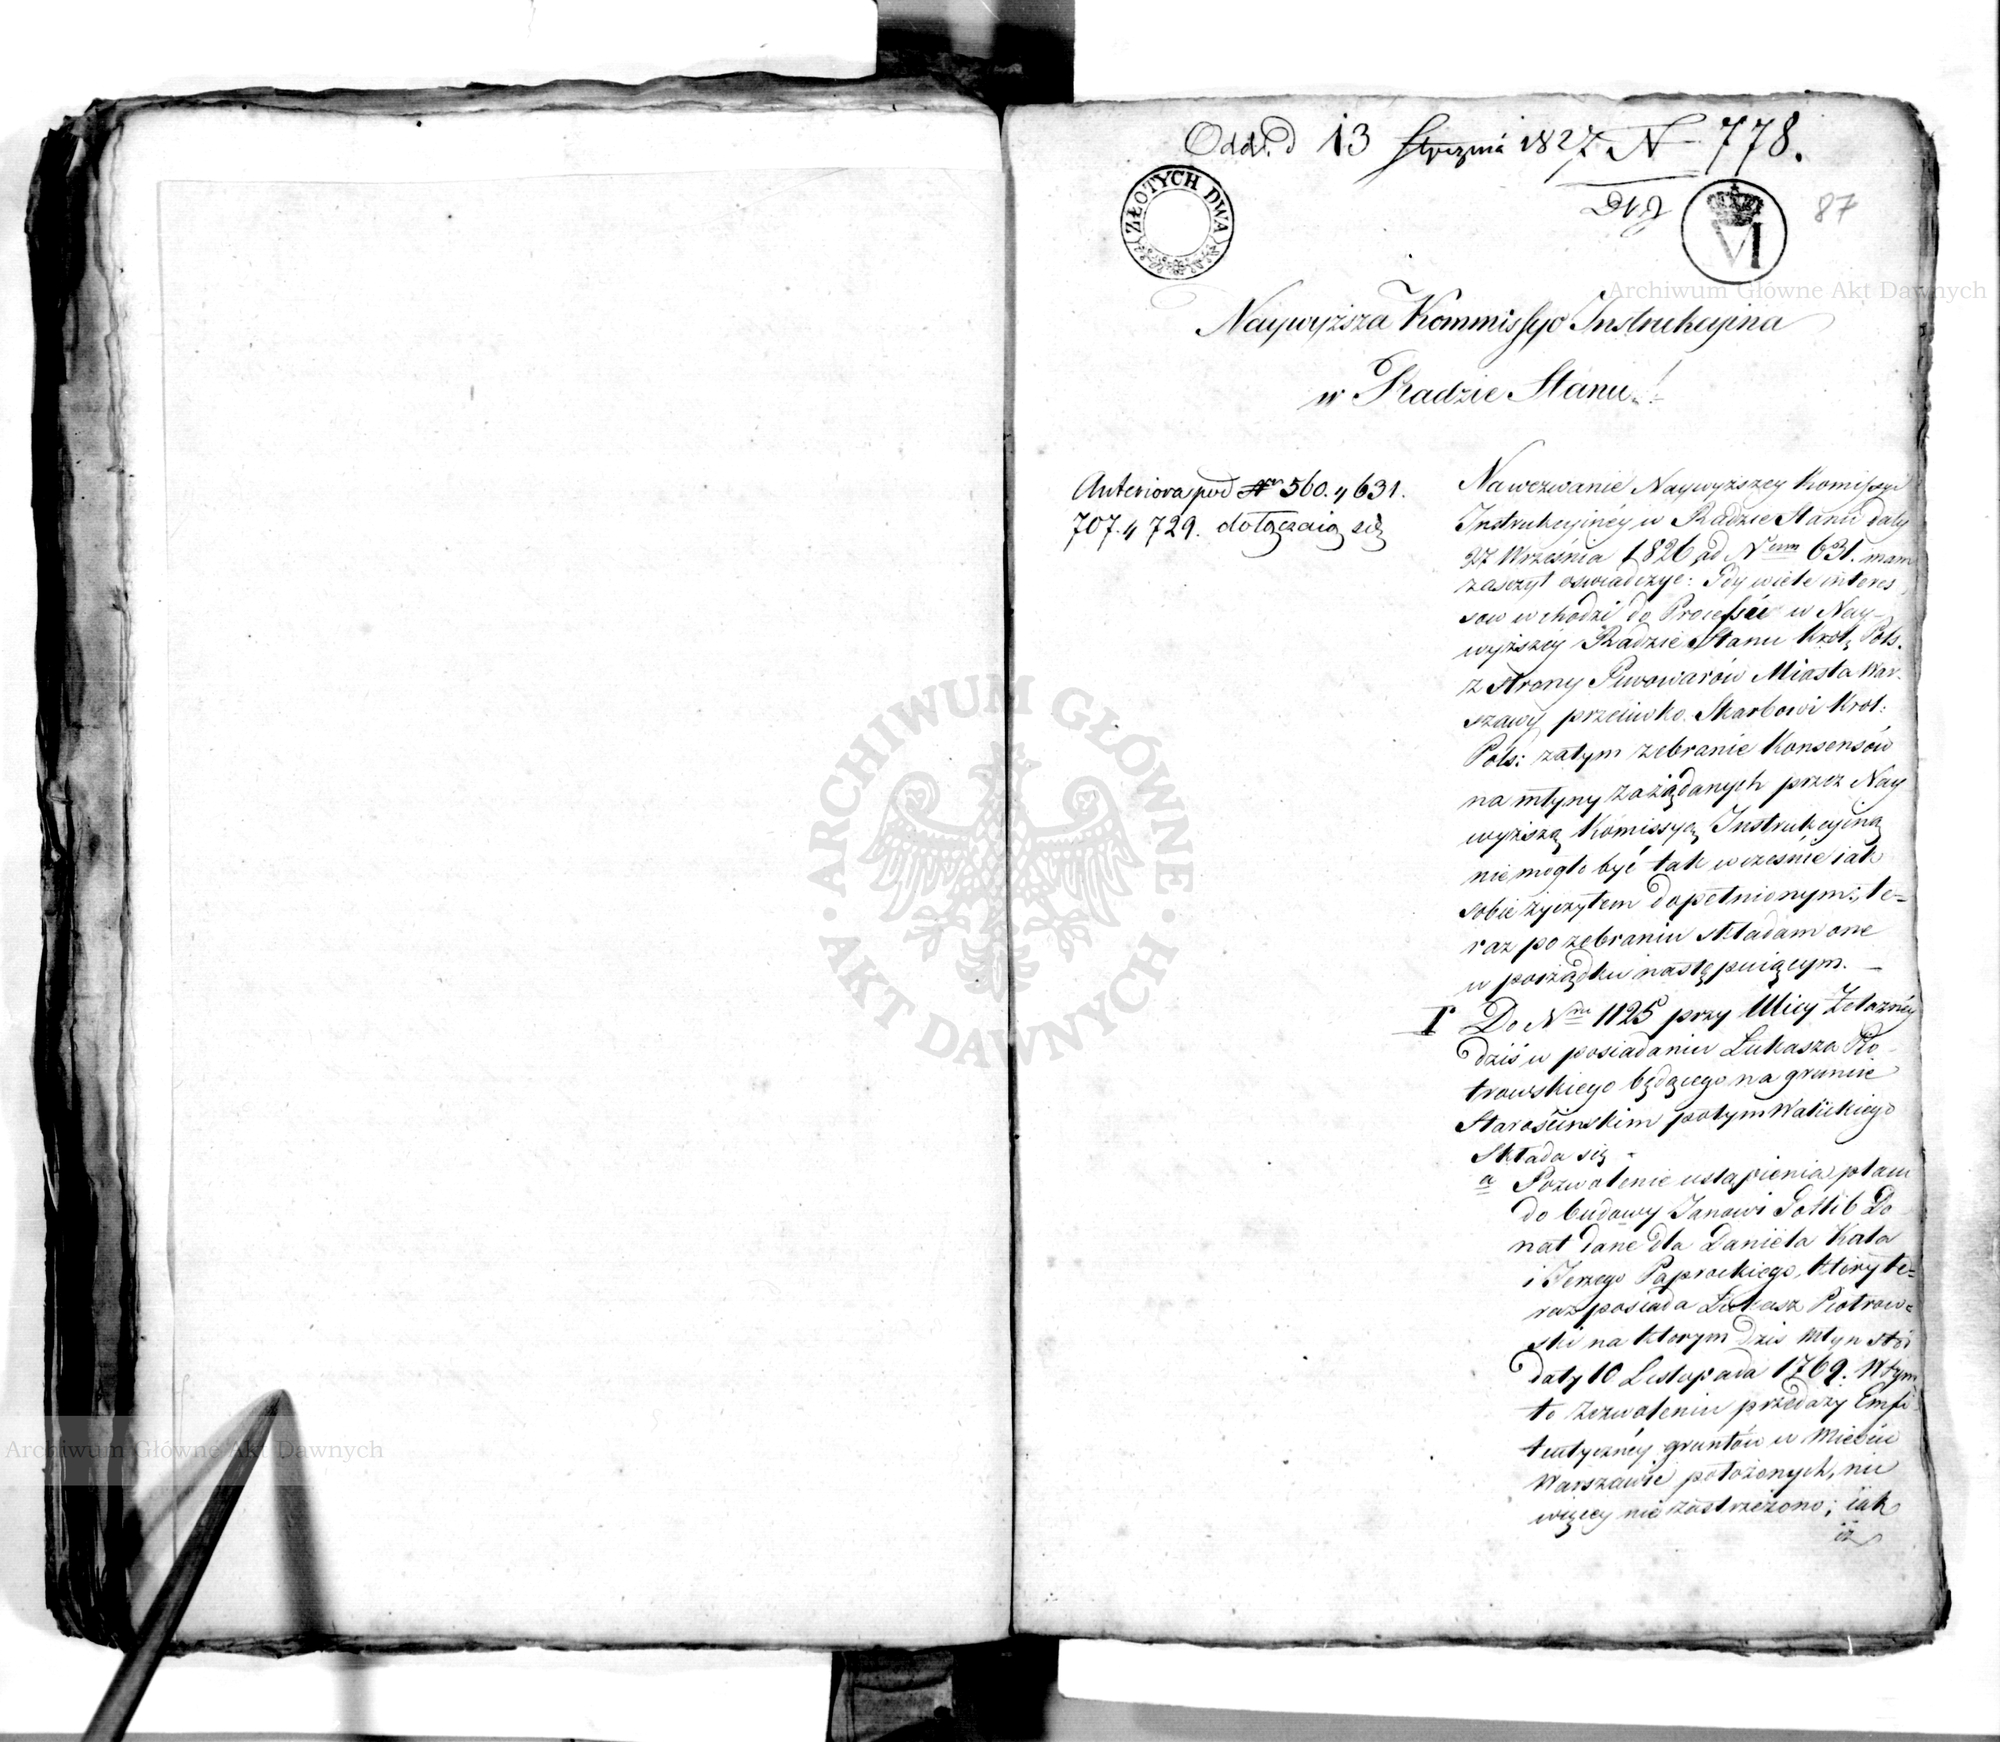 Odd. d 13 Stycznia 1827 N 778.
ZŁOTYCH DWA
87
Naywyższa Kommissyo Instrukcyina
w Radzie Stanu!
Anteriora pod Nrn 560. 4 631.
707. 4 729. dołączaią się
Nawezwanie Naywyższey Komissyi
Instrukcyinéy w Radzie Stanu daty
27 Września 1826 ad Nrum 631. mam
zaszczyt oswiadczyć: Gdy wiele interes
sow wchodzi do Processu w Nay-
wyższéy Radzie Stanu Krol. Pols.
z strony Piwowarów Miasta War-
szawy przeciwko Skarbowi Krol:
Pols: zatym zebranie Konsensów
na młyny zażądanych przez Nay
wyższą Komissyą Instrukcyiną
nie mogło być tak wcześnie iak
sobie życzyłem dopełnionym; te=
raz po zebraniu składam one
w porządku następuiącym. —
I Do Nru 1125 przy Ulicy Żelaznéy
dziś w posiadaniu Łukasza Pio-
trowskiego będącego na gruncie
Starościnskim potym Walickiego
Składa się -
a Pozwolenie ustąpienia placu
do budowy Janowi Gottlib Do
nat dane dla Daniela Kala
i Jerzego Paprockiego, który te=
raz posiada Łukasz Piotrow=
ski na ktorym dzis młyn stoi
daty 10 Listopada 1769. W tym
to zezwoleniu przedaży Emfi
teutycznéy gruntów w Mieście
Warszawie położonych, nic
więcey nie zastrzeżono; iak
iż
ARCHIWUM GŁÓWNE AKT DAWNYCH
Archiwum Główne Akt Dawnych
Archiwum Główne Akt Dawnych